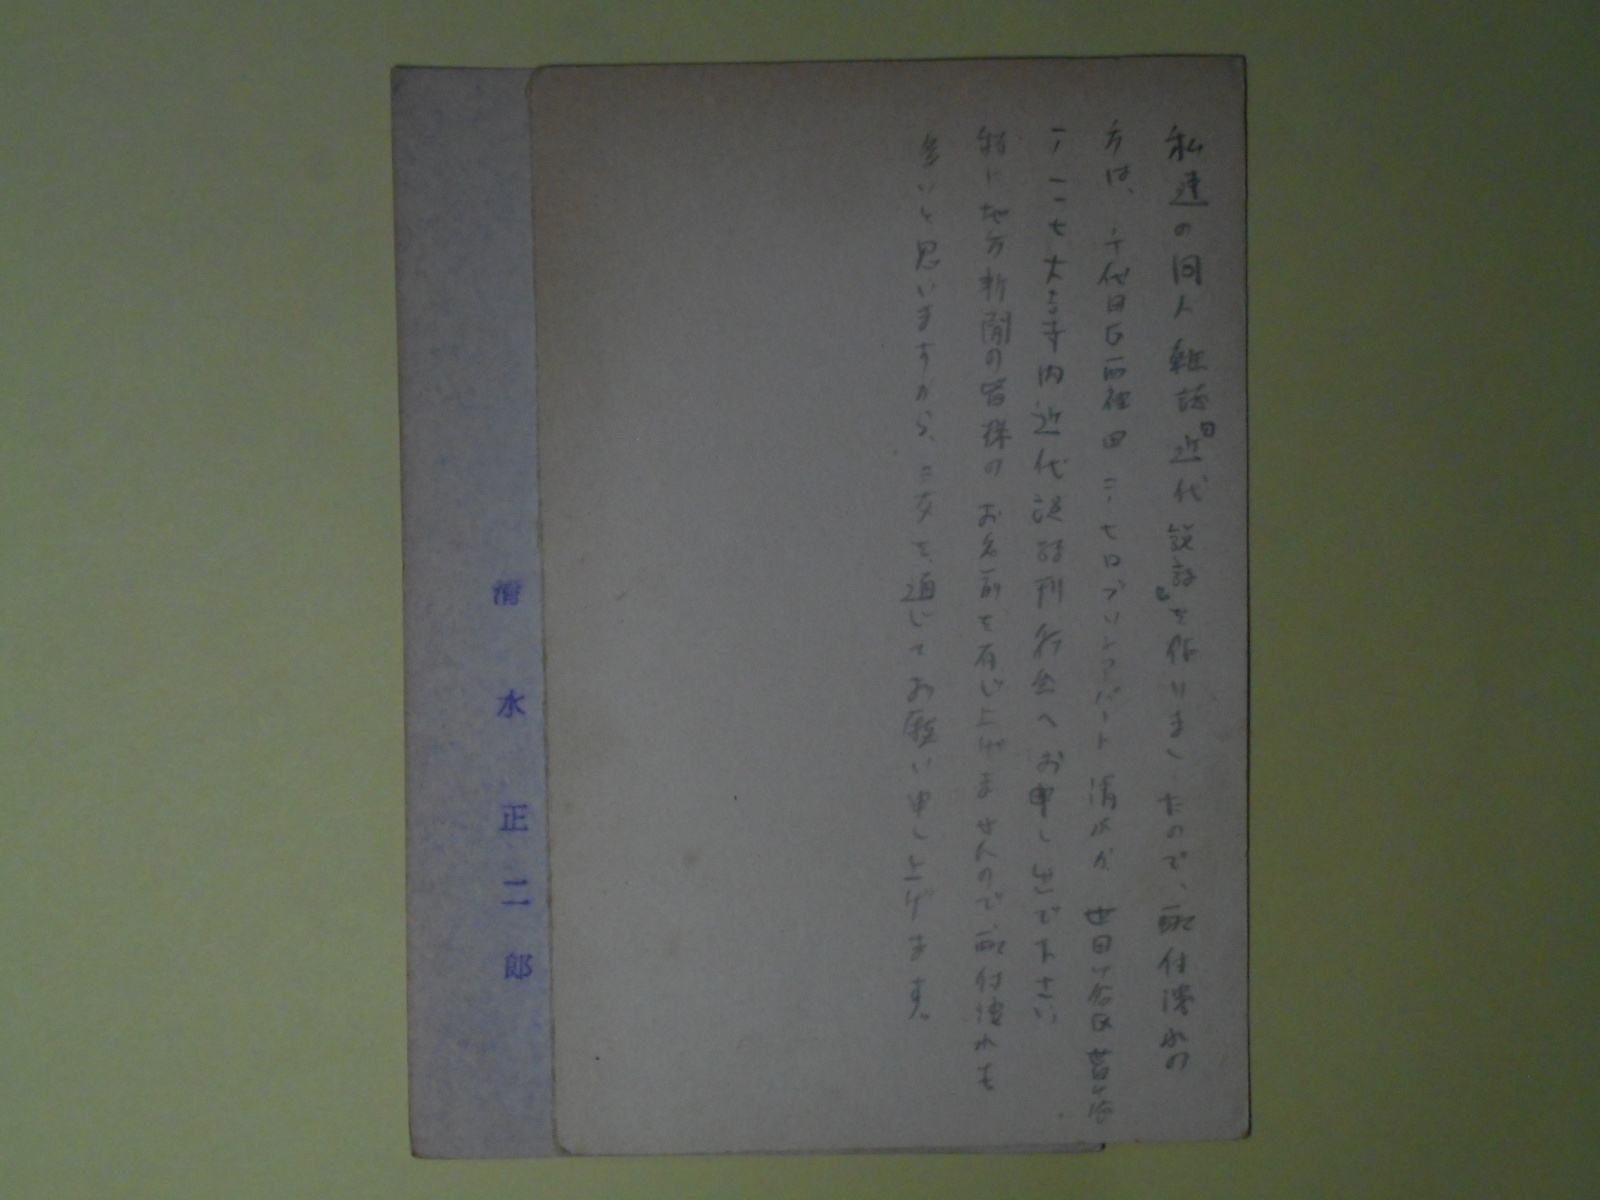 私達の同人雑誌『近代説話』を作りましたので、配付洩れの
方は、千代田区西神田二ノ七ロプリンアパート清水か世田ヶ谷区
一ノ一一七大吉寺内近代説話刊行会へお申し出で下さい
特に地方新聞の皆様のお名前を存じ上げませんので、配付洩れも
多いと思いますから、を通じてお願い申し上げます。
清水正二郎